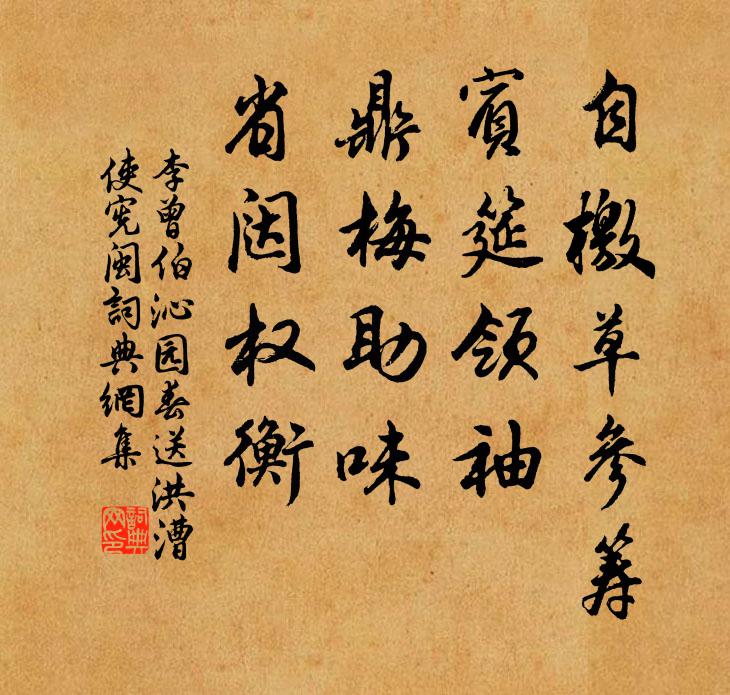 自檄草参筹
賓筵领袖
鼎梅助味
省闼权衡
李曾伯沁园春送洪漕
使宪闽詞典網集
詞典
网印